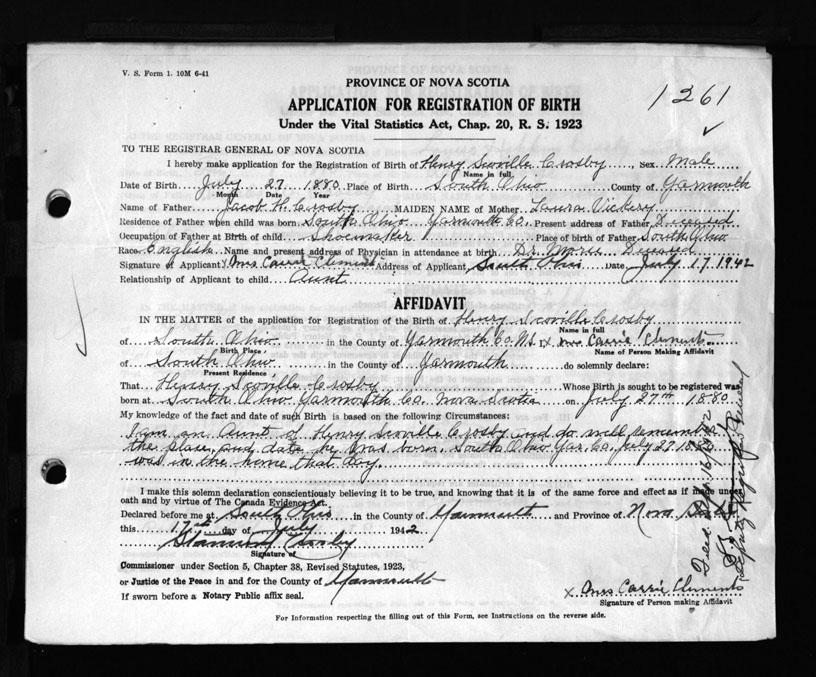 V. S. Form 1. 10M 6-41
PROVINCE OF NOVA SCOTIA
APPLICATION FOR REGISTRATION OF BIRTH
Under the Vital Statistics Act, Chap. 20, R. S. 1923
1261
TO THE REGISTRAR GENERAL OF NOVA SCOTIA
I hereby make application for the Registration of Birth of Henry Scoville Crosby Sex Male
Name in full
Date of Birth July 27 1880 Place of Birth South Ohio County of Yarmouth
Month Date Year
Name of Father Jacob H. Crosby MAIDEN NAME of Mother Laura Vickery
Residence of Father when child was born South Ohio Yarmouth Co. Present address of Father Deceased
Occupation of Father at Birth of child Shoemaker Place of Birth of Father South Ohio
Race English Name and present address of Physician in attendance at birth Dr. Deceased
Signature of Applicant Mrs Carrie Clements Address of Applicant South Ohio Date July 17 1942
Relationship of Applicant to child Aunt
AFFIDAVIT
IN THE MATTER of the application for Registration of the Birth of Henry Scoville Crosby
Name in full
of South Ohio in the County of Yarmouth Co. N.S. I x Mrs Carrie Clements
Birth Place Name of Person Making Affidavit
of South Ohio in the County of Yarmouth do solemnly declare:
Present Residence
That Henry Scoville Crosby Whose Birth is sought to be registered was
born at South Ohio Yarmouth Co. Nova Scotia on July 27th 1880
My knowledge of the fact and date of such Birth is based on the following Circumstances:
I am an Aunt of Henry Scoville Crosby and do well remember
the place and date he was born. South Ohio Yar. Co. July 27 1880
was in the home that day.
I make this solemn declaration conscientiously believing it to be true, and knowing that it is of the same force and effect as if made under
oath and by virtue of The Canada Evidence Act.
Declared before me at South Ohio in the County of Yarmouth and Province of Nova Scotia
this 17th day of July 1942
Crosby
Signature of
Commissioner under Section 5, Chapter 38, Revised Statutes, 1923,
or Justice of the Peace in and for the County of Yarmouth
If sworn before a Notary Public affix seal.
x Mrs Carrie Clements
Signature of Person making Affidavit
For Information respecting the filling out of this Form, see Instructions on the reverse side.
Deputy Registrar General